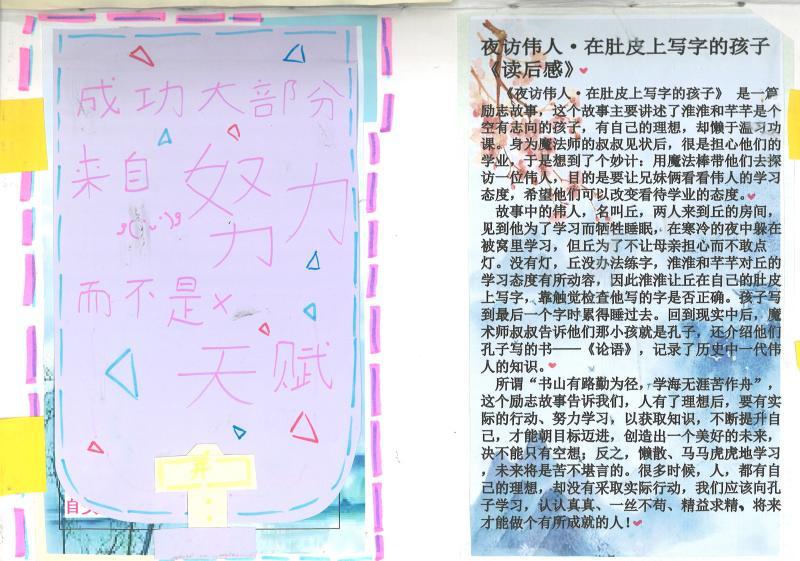 成功大部分
来自努力
努力
而不是×
天赋
自
夜访伟人·在肚皮上写字的孩子
《读后感》
《夜访伟人·在肚皮上写字的孩子》 是一篇
励志故事，这个故事主要讲述了淮淮和芊芊是个
空有志向的孩子，有自己的理想，却懒于温习功
课。身为魔法师的叔叔见状后，很是担心他们的
学业，于是想到了个妙计：用魔法棒带他们去探
访一位伟人，目的是要让兄妹俩看看伟人的学习
态度，希望他们可以改变看待学业的态度。
故事中的伟人，名叫丘，两人来到丘的房间，
见到他为了学习而牺牲睡眠，在寒冷的夜中躲在
被窝里学习，但丘为了不让母亲担心而不敢点
灯。没有灯，丘没办法练字，淮淮和芊芊对丘的
学习态度有所动容，因此淮淮让丘在自己的肚皮
上写字，靠触觉检查他写的字是否正确。孩子写
到最后一个字时累得睡过去。回到现实中后，魔
术师叔叔告诉他们那小孩就是孔子，还介绍他们
孔子写的书——《论语》，记录了历史中一代伟
人的知识。
所谓“书山有路勤为径，学海无涯苦作舟”，
这个励志故事告诉我们，人有了理想后，要有实
际的行动、努力学习，以获取知识，不断提升自
己，才能朝目标迈进，创造出一个美好的未来，
决不能只有空想；反之，懒散、马马虎虎地学习
，未来将是苦不堪言的。很多时候，人，都有自
己的理想，却没有采取实际行动，我们应该向孔
子学习，认认真真、一丝不苟、精益求精，将来
才能做个有所成就的人！